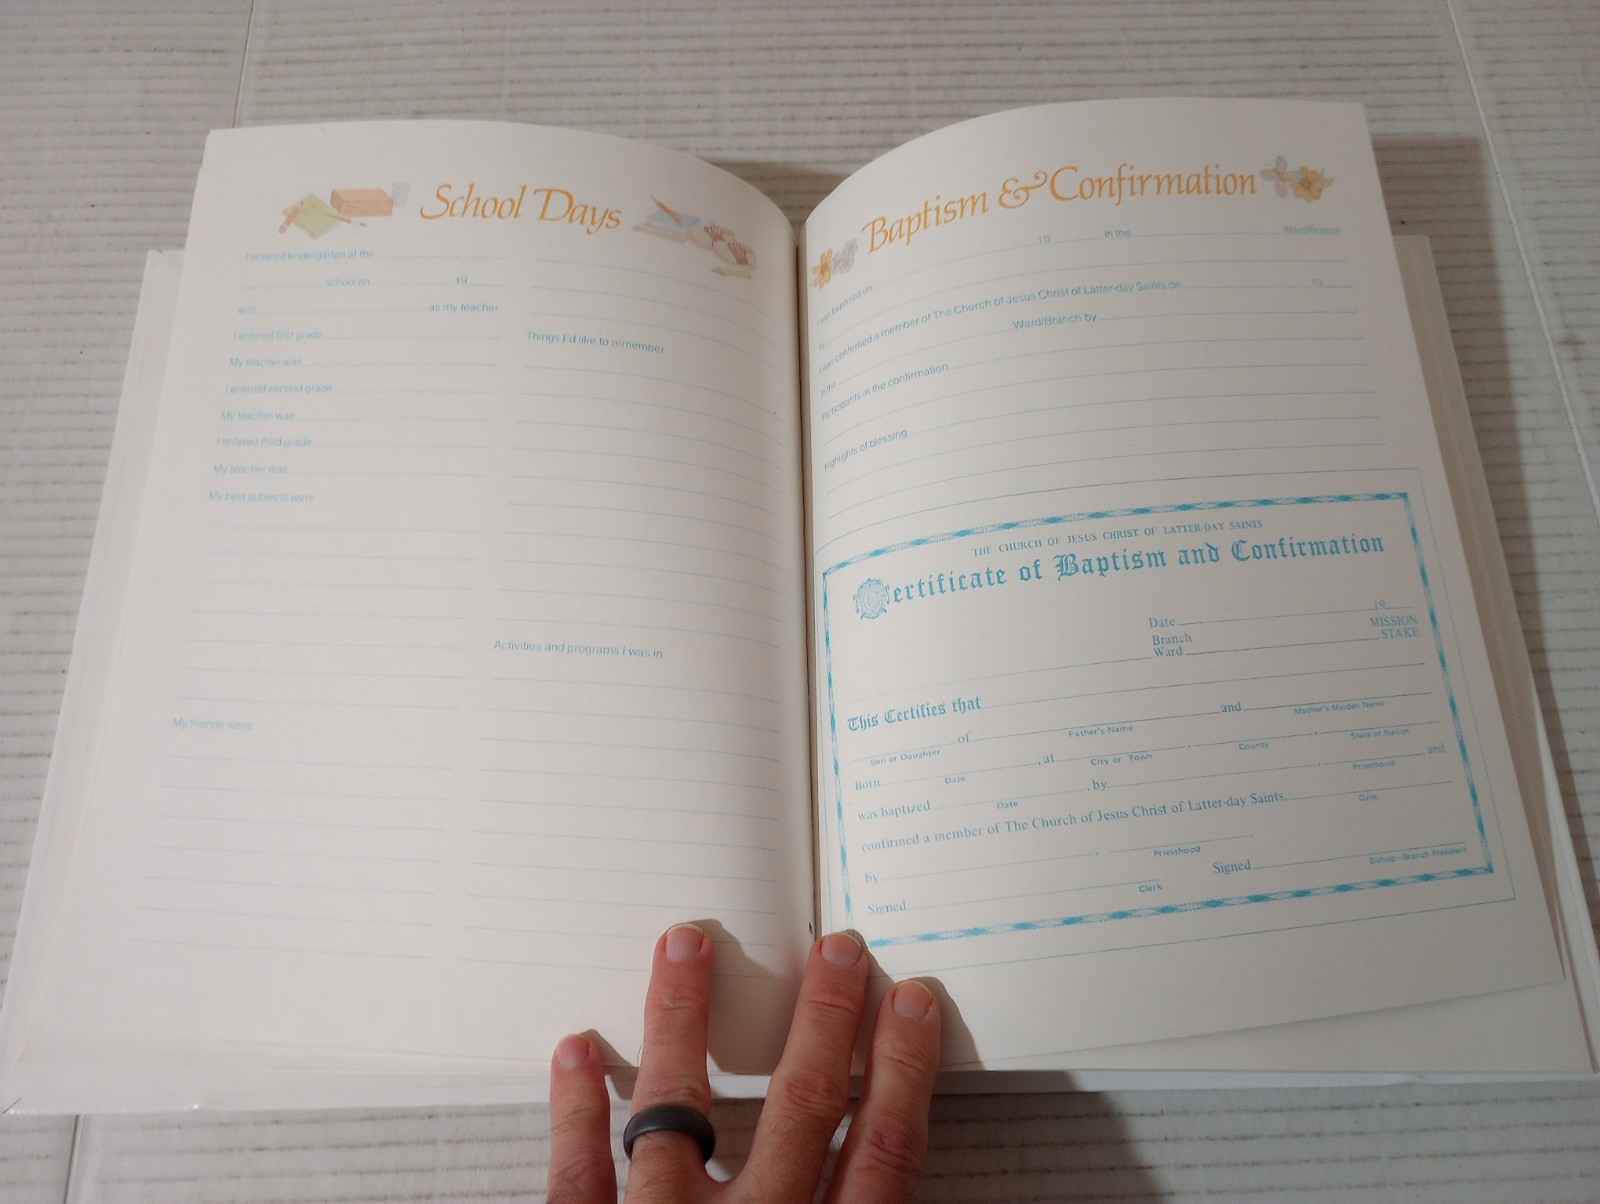 School Days
I entered kindergarten at the
school on 19
with as my teacher.
I entered first grade
My teacher was
I entered second grade
My teacher was
I entered third grade
My teacher was
My best subjects were
My friends were
Things I'd like to remember
Activities and programs I was in
Baptism & Confirmation
I was baptized on 19 in the Ward/Branch
by
I was confirmed a member of The Church of Jesus Christ of Latter-day Saints on 19
in the Ward/Branch by
Participants in the confirmation
Highlights of blessing
THE CHURCH OF JESUS CHRIST OF LATTER-DAY SAINTS
Certificate of Baptism and Confirmation
Date 19
Branch MISSION
Ward STAKE
This Certifies that
of and
Son or Daughter Father's Name Mother's Maiden Name
Born , at , ,
Date City or Town County State or Nation
was baptized , by , , and
Date Priesthood
confirmed a member of The Church of Jesus Christ of Latter-day Saints,
Date
by , .
Priesthood
Signed Signed
Clerk Bishop - Branch President